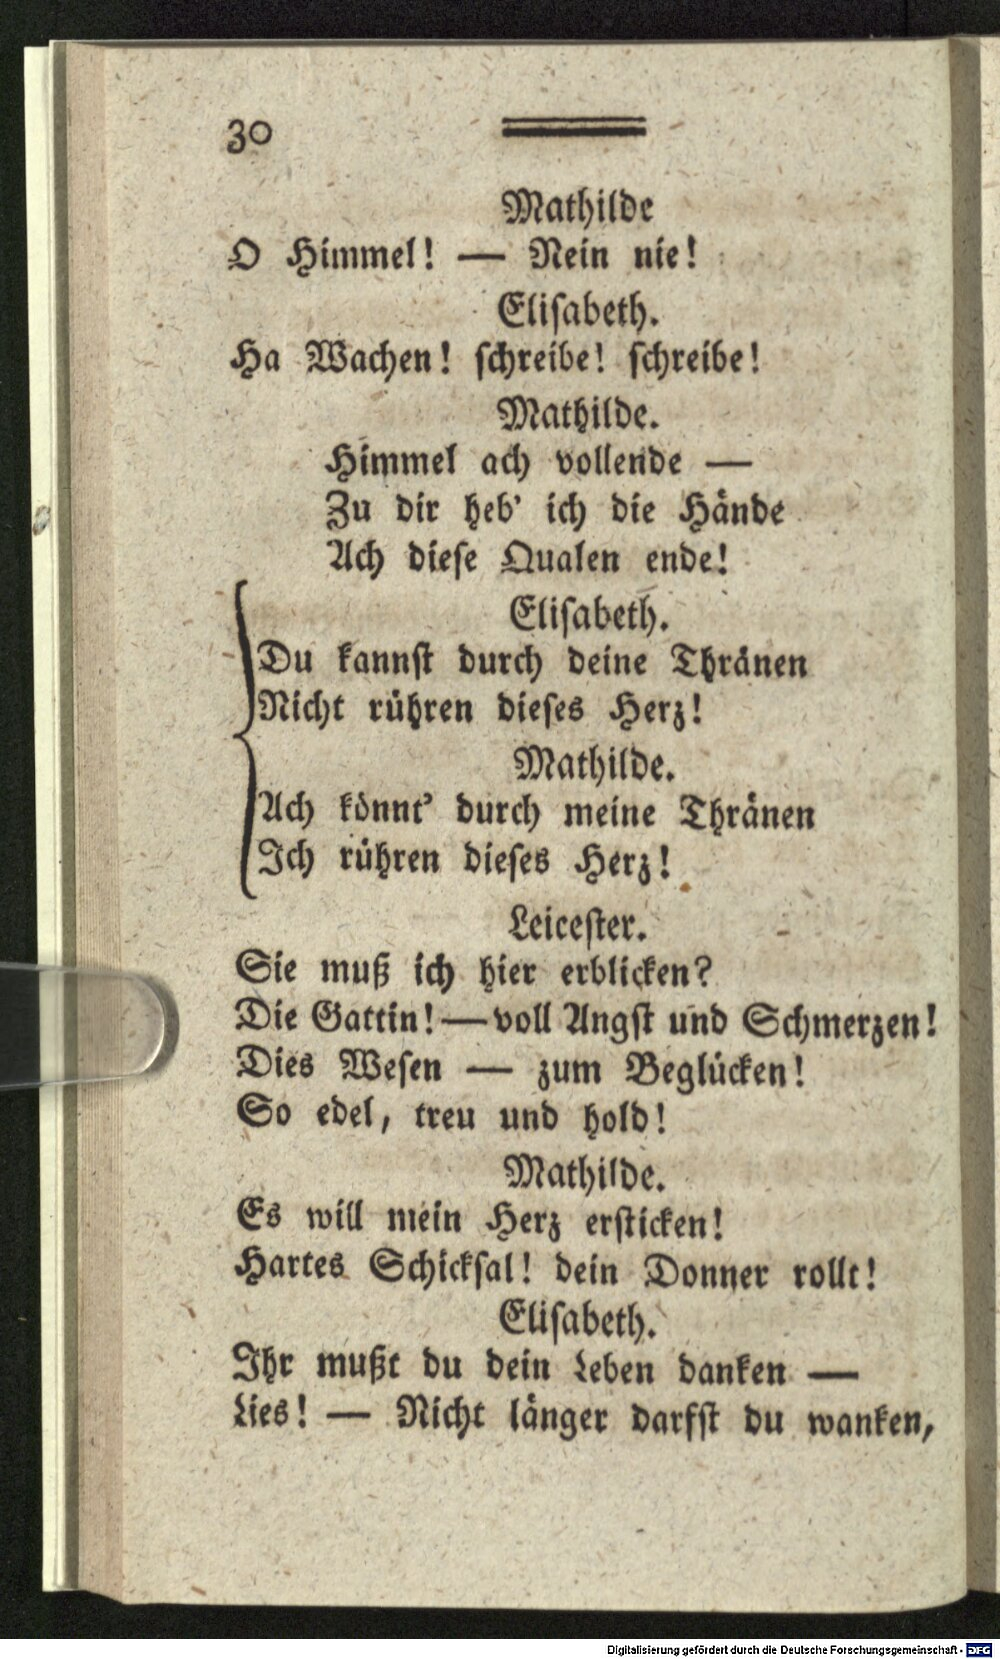 30
Mathilde
O Himmel! — Nein nie!
Eliſabeth.
Ha Wachen! ſchreibe! ſchreibe!
Mathilde.
Himmel ach vollende —
Zu dir heb' ich die Hände
Ach dieſe Qualen ende!
Eliſabeth.
Du kannſt durch deine Thränen
Nicht rühren dieſes Herz!
Mathilde.
Ach könnt' durch meine Thränen
Ich rühren dieſes Herz!
Leiceſter.
Sie muß ich hier erblicken?
Die Gattin! — voll Angſt und Schmerzen!
Dies Weſen — zum Beglücken!
So edel, treu und hold!
Mathilde.
Es will mein Herz erſticken!
Hartes Schickſal! dein Donner rollt!
Eliſabeth.
Ihr mußt du dein Leben danken —
Lies! — Nicht länger darfſt du wanken,
Digitalisierung gefördert durch die Deutsche Forschungsgemeinschaft - DFG